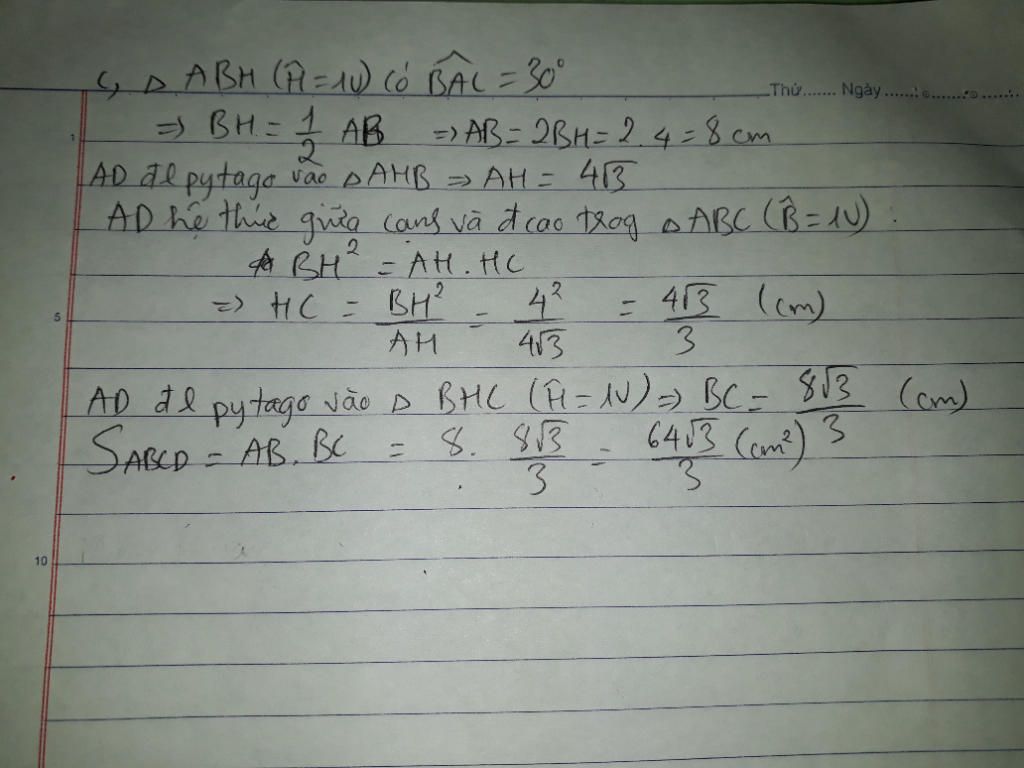 Thứ....... Ngày
c, △ ABH (Ĥ = 1V) có BAC = 30°
1
⇒ BH = 1/2 AB ⇒ AB = 2BH = 2.4 = 8 cm
AD đl pytago vào △ AHB ⇒ AH = 4√3
AD hệ thức giữa cạnh và đ cao trog △ ABC (B̂ = 1V) :
BH² = AH . HC
5
⇒ HC = BH²/AH = 4²/4√3 = 4√3/3 (cm)
AD đl pytago vào △ BHC (Ĥ = 1V) ⇒ BC = 8√3/3 (cm)
S ABCD = AB . BC = 8 . 8√3/3 = 64√3/3 (cm²)
10